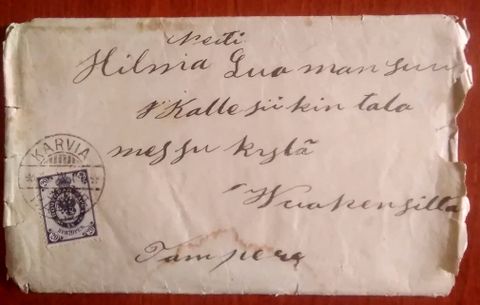 Neiti
Hilma Luomansuu
Kallesiikin talo
messu kylä
Wuakensilla
Tampere
KARVIA